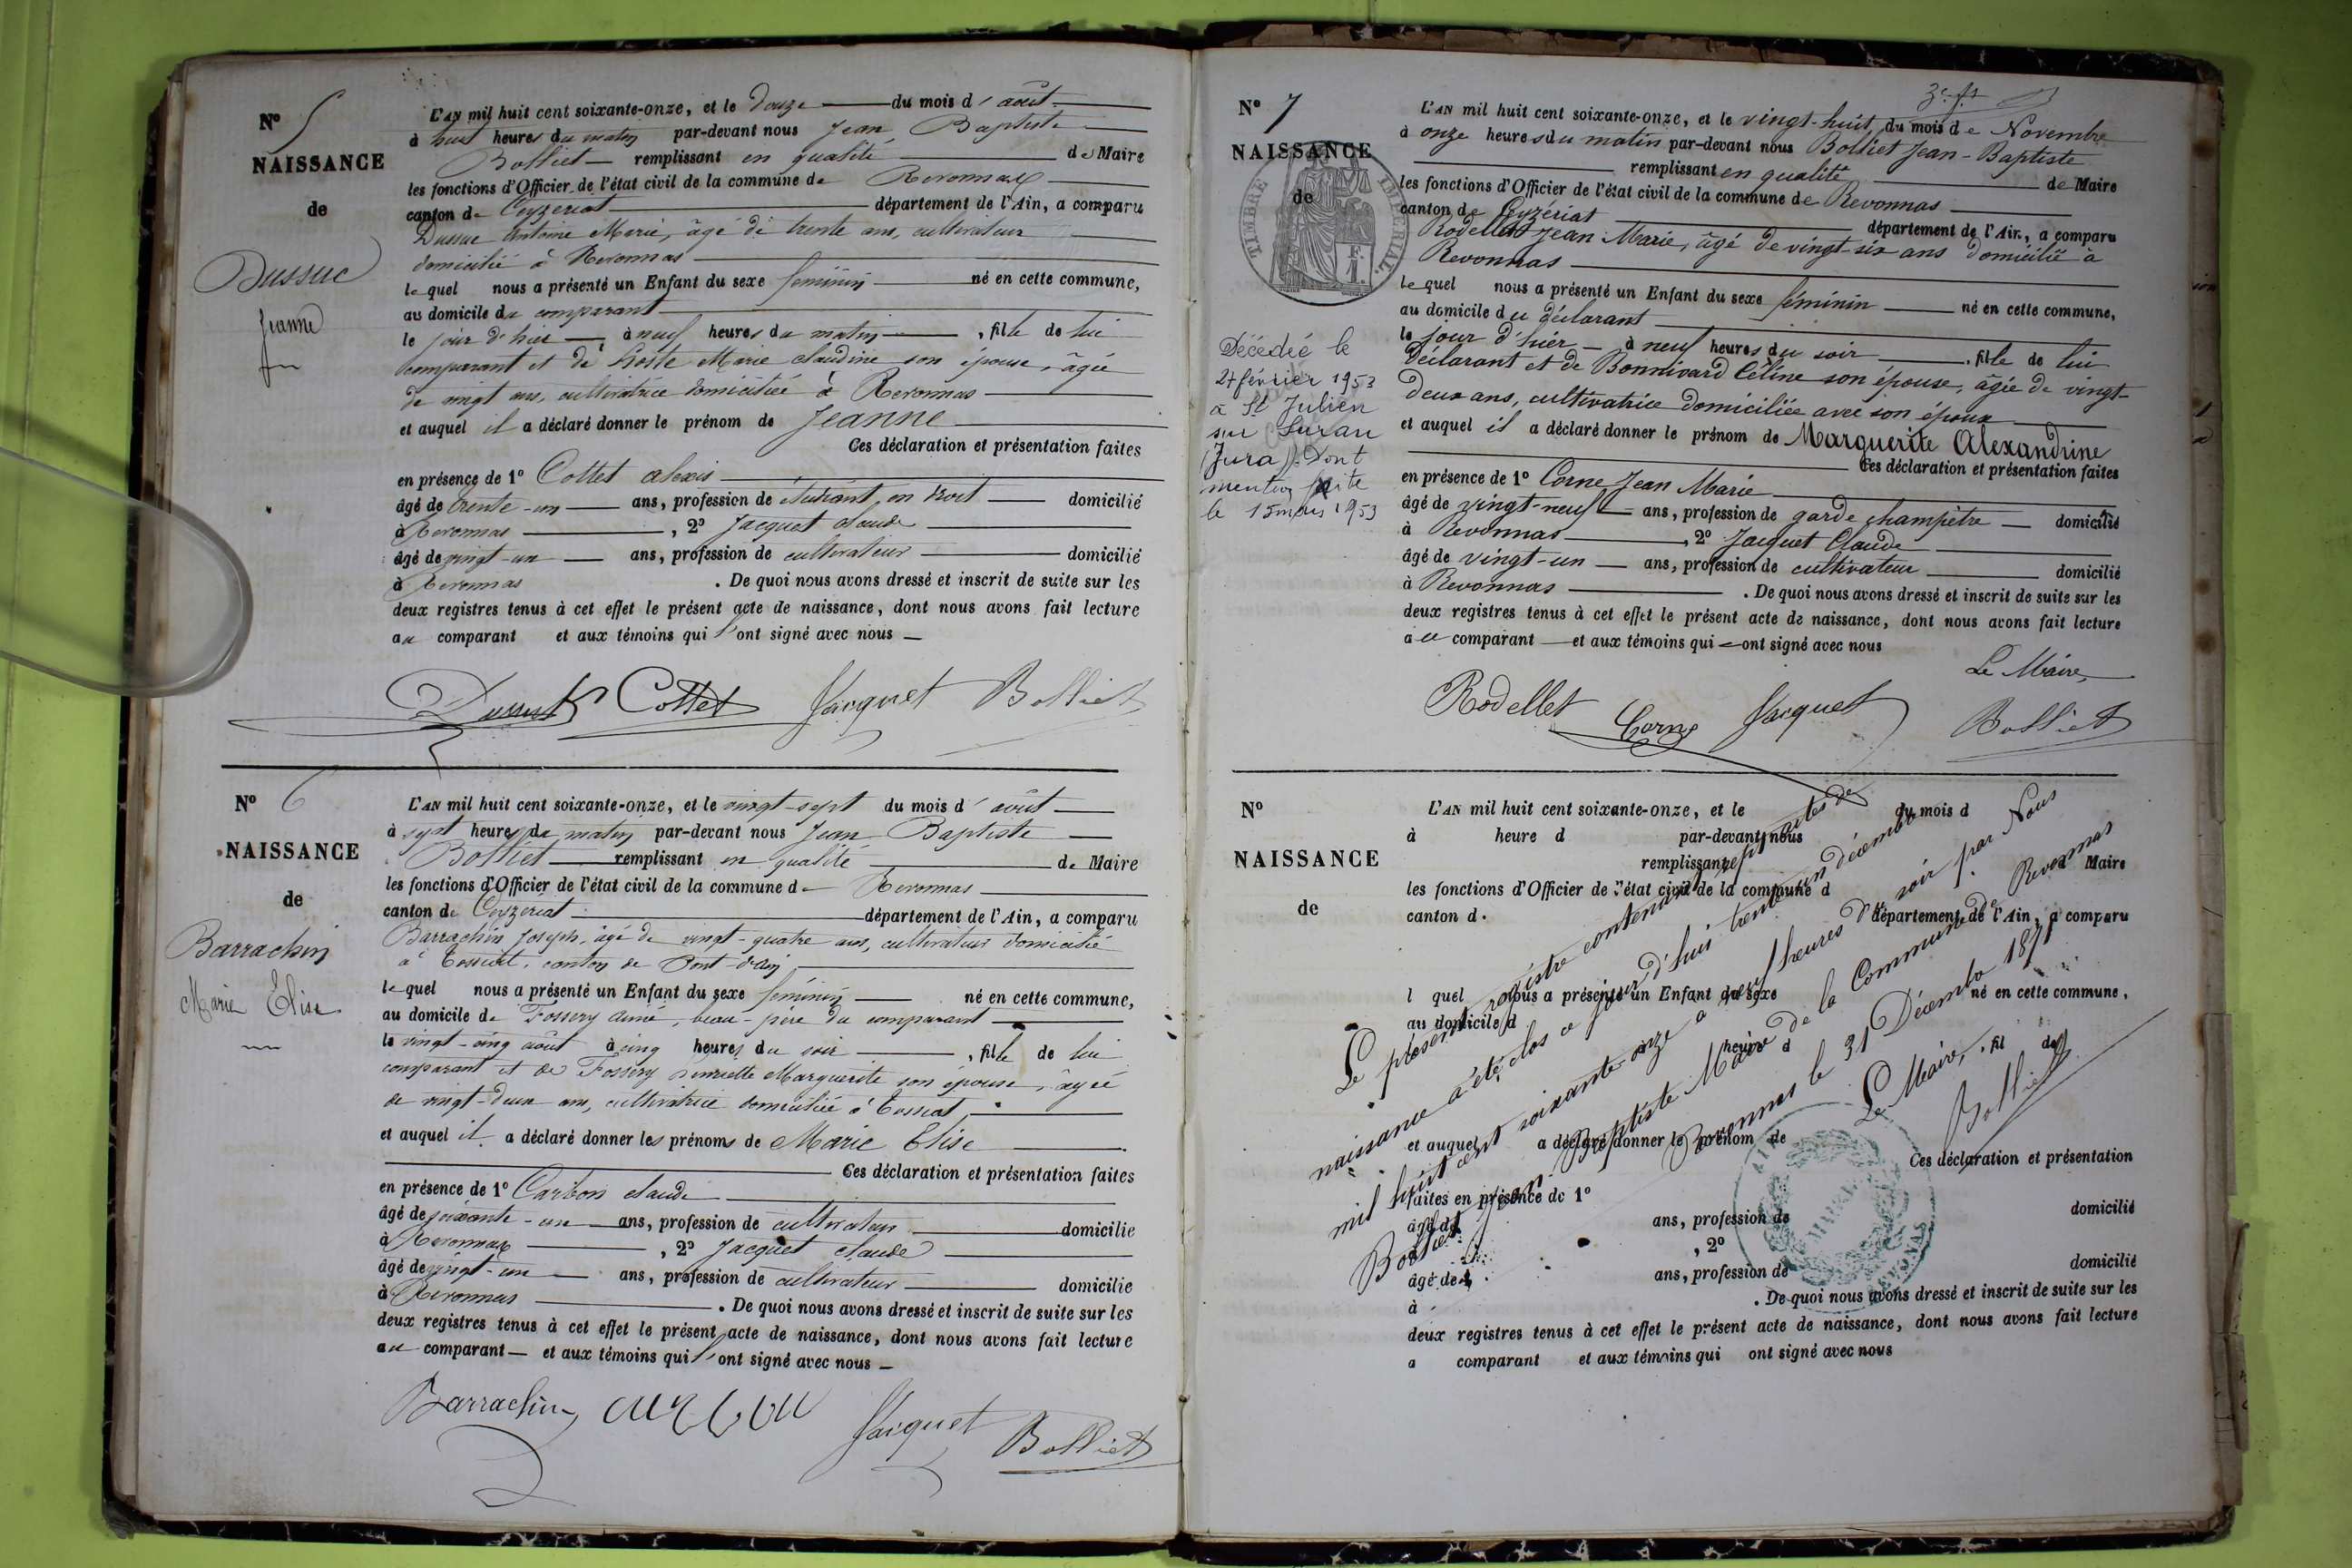 N° 5
NAISSANCE
de
Dussuc
Jeanne
L'AN mil huit cent soixante-onze, et le douze du mois d'août
à huit heures du matin par-devant nous Jean Baptiste
Bolliet remplissant en qualité de Maire
les fonctions d'Officier de l'état civil de la commune de Revonnas
canton de Ceyzeriat département de l'Ain, a comparu
Dussuc Antoine Marie, âgé de trente ans, cultivateur
domicilié à Revonnas
lequel nous a présenté un Enfant du sexe féminin né en cette commune,
au domicile du comparant
le jour d'hier à neuf heures du matin, fille de lui
comparant et de Marie Claudine son épouse, âgée
de vingt ans, cultivatrice domiciliée à Revonnas
et auquel il a déclaré donner le prénom de Jeanne
Ces déclaration et présentation faites
en présence de 1° Cottet Alexis
âgé de trente-un ans, profession de étudiant en droit domicilié
à Revonnas, 2° Jacquet Claude
âgé de vingt-un ans, profession de cultivateur domicilié
à Revonnas. De quoi nous avons dressé et inscrit de suite sur les
deux registres tenus à cet effet le présent acte de naissance, dont nous avons fait lecture
au comparant et aux témoins qui l'ont signé avec nous
Dussuc Cottet Jacquet Bolliet
N° 6
NAISSANCE
de
Barrachin
Marie Elise
L'AN mil huit cent soixante-onze, et le vingt-sept du mois d'août
à sept heures du matin par-devant nous Jean Baptiste
Bolliet remplissant en qualité de Maire
les fonctions d'Officier de l'état civil de la commune de Revonnas
canton de Ceyzeriat département de l'Ain, a comparu
Barrachin Joseph, âgé de vingt-quatre ans, cultivateur domicilié
à Tossiat, canton de Pont-d'Ain
lequel nous a présenté un Enfant du sexe féminin né en cette commune,
au domicile de Fossery Aimé, beau-père du comparant
le vingt-cinq août à cinq heures du soir, fille de lui
comparant et de Fossery Marguerite son épouse, âgée
de vingt-deux ans, cultivatrice domiciliée à Tossiat,
et auquel il a déclaré donner les prénoms de Marie Elise
Ces déclaration et présentation faites
en présence de 1° Carbon Claude
âgé de soixante-un ans, profession de cultivateur domicilié
à Revonnas, 2° Jacquet Claude
âgé de vingt-un ans, profession de cultivateur domicilié
à Revonnas. De quoi nous avons dressé et inscrit de suite sur les
deux registres tenus à cet effet le présent acte de naissance, dont nous avons fait lecture
au comparant et aux témoins qui l'ont signé avec nous
Barrachin Jacquet Bolliet
N° 7
NAISSANCE
de
TIMBRE IMPERIAL
Décédée le
27 février 1953
à St Julien
sur Suran
(Jura). Dont
mention faite
le 15 mars 1953
L'AN mil huit cent soixante-onze, et le vingt-huit du mois de Novembre
à onze heures du matin par-devant nous Bolliet Jean-Baptiste
remplissant en qualité de Maire
les fonctions d'Officier de l'état civil de la commune de Revonnas
canton de Ceyzériat département de l'Ain, a comparu
Rodellet Jean Marie, âgé de vingt-six ans domicilié à
Revonnas
lequel nous a présenté un Enfant du sexe féminin né en cette commune,
au domicile du déclarant
le jour d'hier à neuf heures du soir, fille de lui
déclarant et de Bonnivard Céline son épouse, âgée de vingt-
deux ans, cultivatrice domiciliée avec son époux
et auquel il a déclaré donner le prénom de Marguerite Alexandrine
Ces déclaration et présentation faites
en présence de 1° Corne Jean Marie
âgé de vingt-neuf ans, profession de garde champêtre domicilié
à Revonnas, 2° Jacquet Claude
âgé de vingt-un ans, profession de cultivateur domicilié
à Revonnas. De quoi nous avons dressé et inscrit de suite sur les
deux registres tenus à cet effet le présent acte de naissance, dont nous avons fait lecture
au comparant et aux témoins qui ont signé avec nous
Le Maire,
Rodellet Corne Jacquet Bolliet
N°
NAISSANCE
de
L'AN mil huit cent soixante-onze, et le du mois d
à heure d par-devant nous
remplissant d Maire
les fonctions d'Officier de l'état civil de la commune d
canton d département de l'Ain, a comparu
l quel nous a présenté un Enfant du sexe né en cette commune,
au domicile d
heure d, fil de
et auquel a déclaré donner le prénom de
Ces déclaration et présentation
faites en présence de 1°
âgé de ans, profession de domicilié
, 2°
âgé de ans, profession de domicilié
à . De quoi nous avons dressé et inscrit de suite sur les
deux registres tenus à cet effet le présent acte de naissance, dont nous avons fait lecture
a comparant et aux témoins qui ont signé avec nous
Le présent registre contenant sept actes de
naissance a été clos ce jourd'hui trente-un décembre
mil huit cent soixante-onze à neuf heures du soir par Nous
Bolliet Jean Baptiste Maire de la Commune de Revonnas
Revonnas le 31 Décembre 1871
Le Maire,
Bolliet